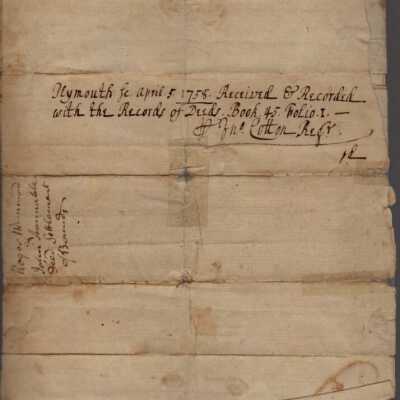 Plymouth sc April 5 1758. Received & Recorded
with the Records of Deeds, Book 45. Folio. 1. —
Jnº. Cotton Regr.
Roger
John
Deed Settlement
of Bounds